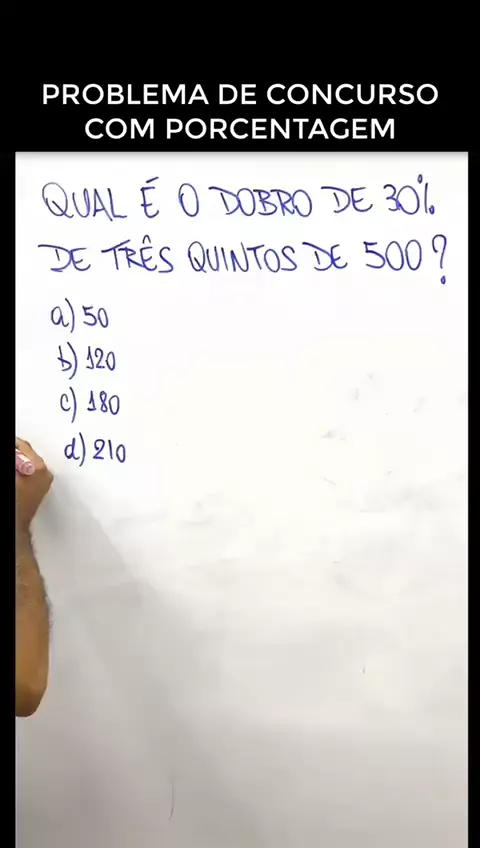 PROBLEMA DE CONCURSO
COM PORCENTAGEM
QUAL É O DOBRO DE 30%
DE TRÊS QUINTOS DE 500?
a) 50
b) 120
c) 180
d) 210